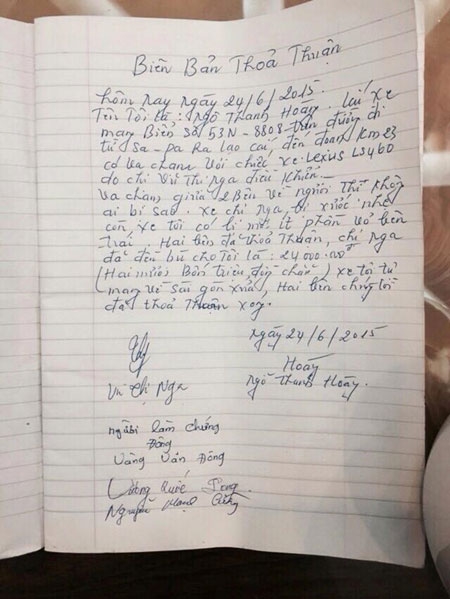 Biên Bản Thoả Thuận
hôm nay ngày 24/6/2015.
Tên Tôi là: Ngô Thanh Hoáy. Lái xe
mang Biển Số 53N - 8808 trên đường đi
từ Sa - pa Ra lao cai, đến đoạn Km 23
có va chạm với chiếc xe Lexus LS460
do chị Vũ Thị Nga điều khiển.
Va chạm giữa 2 Bên về người thì không
ai bị sao. xe chị Nga bị xước nhẹ
còn xe tôi có bị một ít phần vỏ bên
trái. Hai bên đã thoả Thuận, chị Nga
đã đền bù cho Tôi là: 24.000.00đ
(Hai mươi Bốn triệu chẵn) xe tôi tự
mang về sài gòn sửa, Hai bên chúng tôi
đã thoả Thuận xong.
ngày 24/6/2015
Hoáy
Vũ Thị Nga Ngô Thanh Hoáy.
người làm chứng
Đông
Vàng Văn Đông
Lương Quốc Long
Nguyễn Mạnh